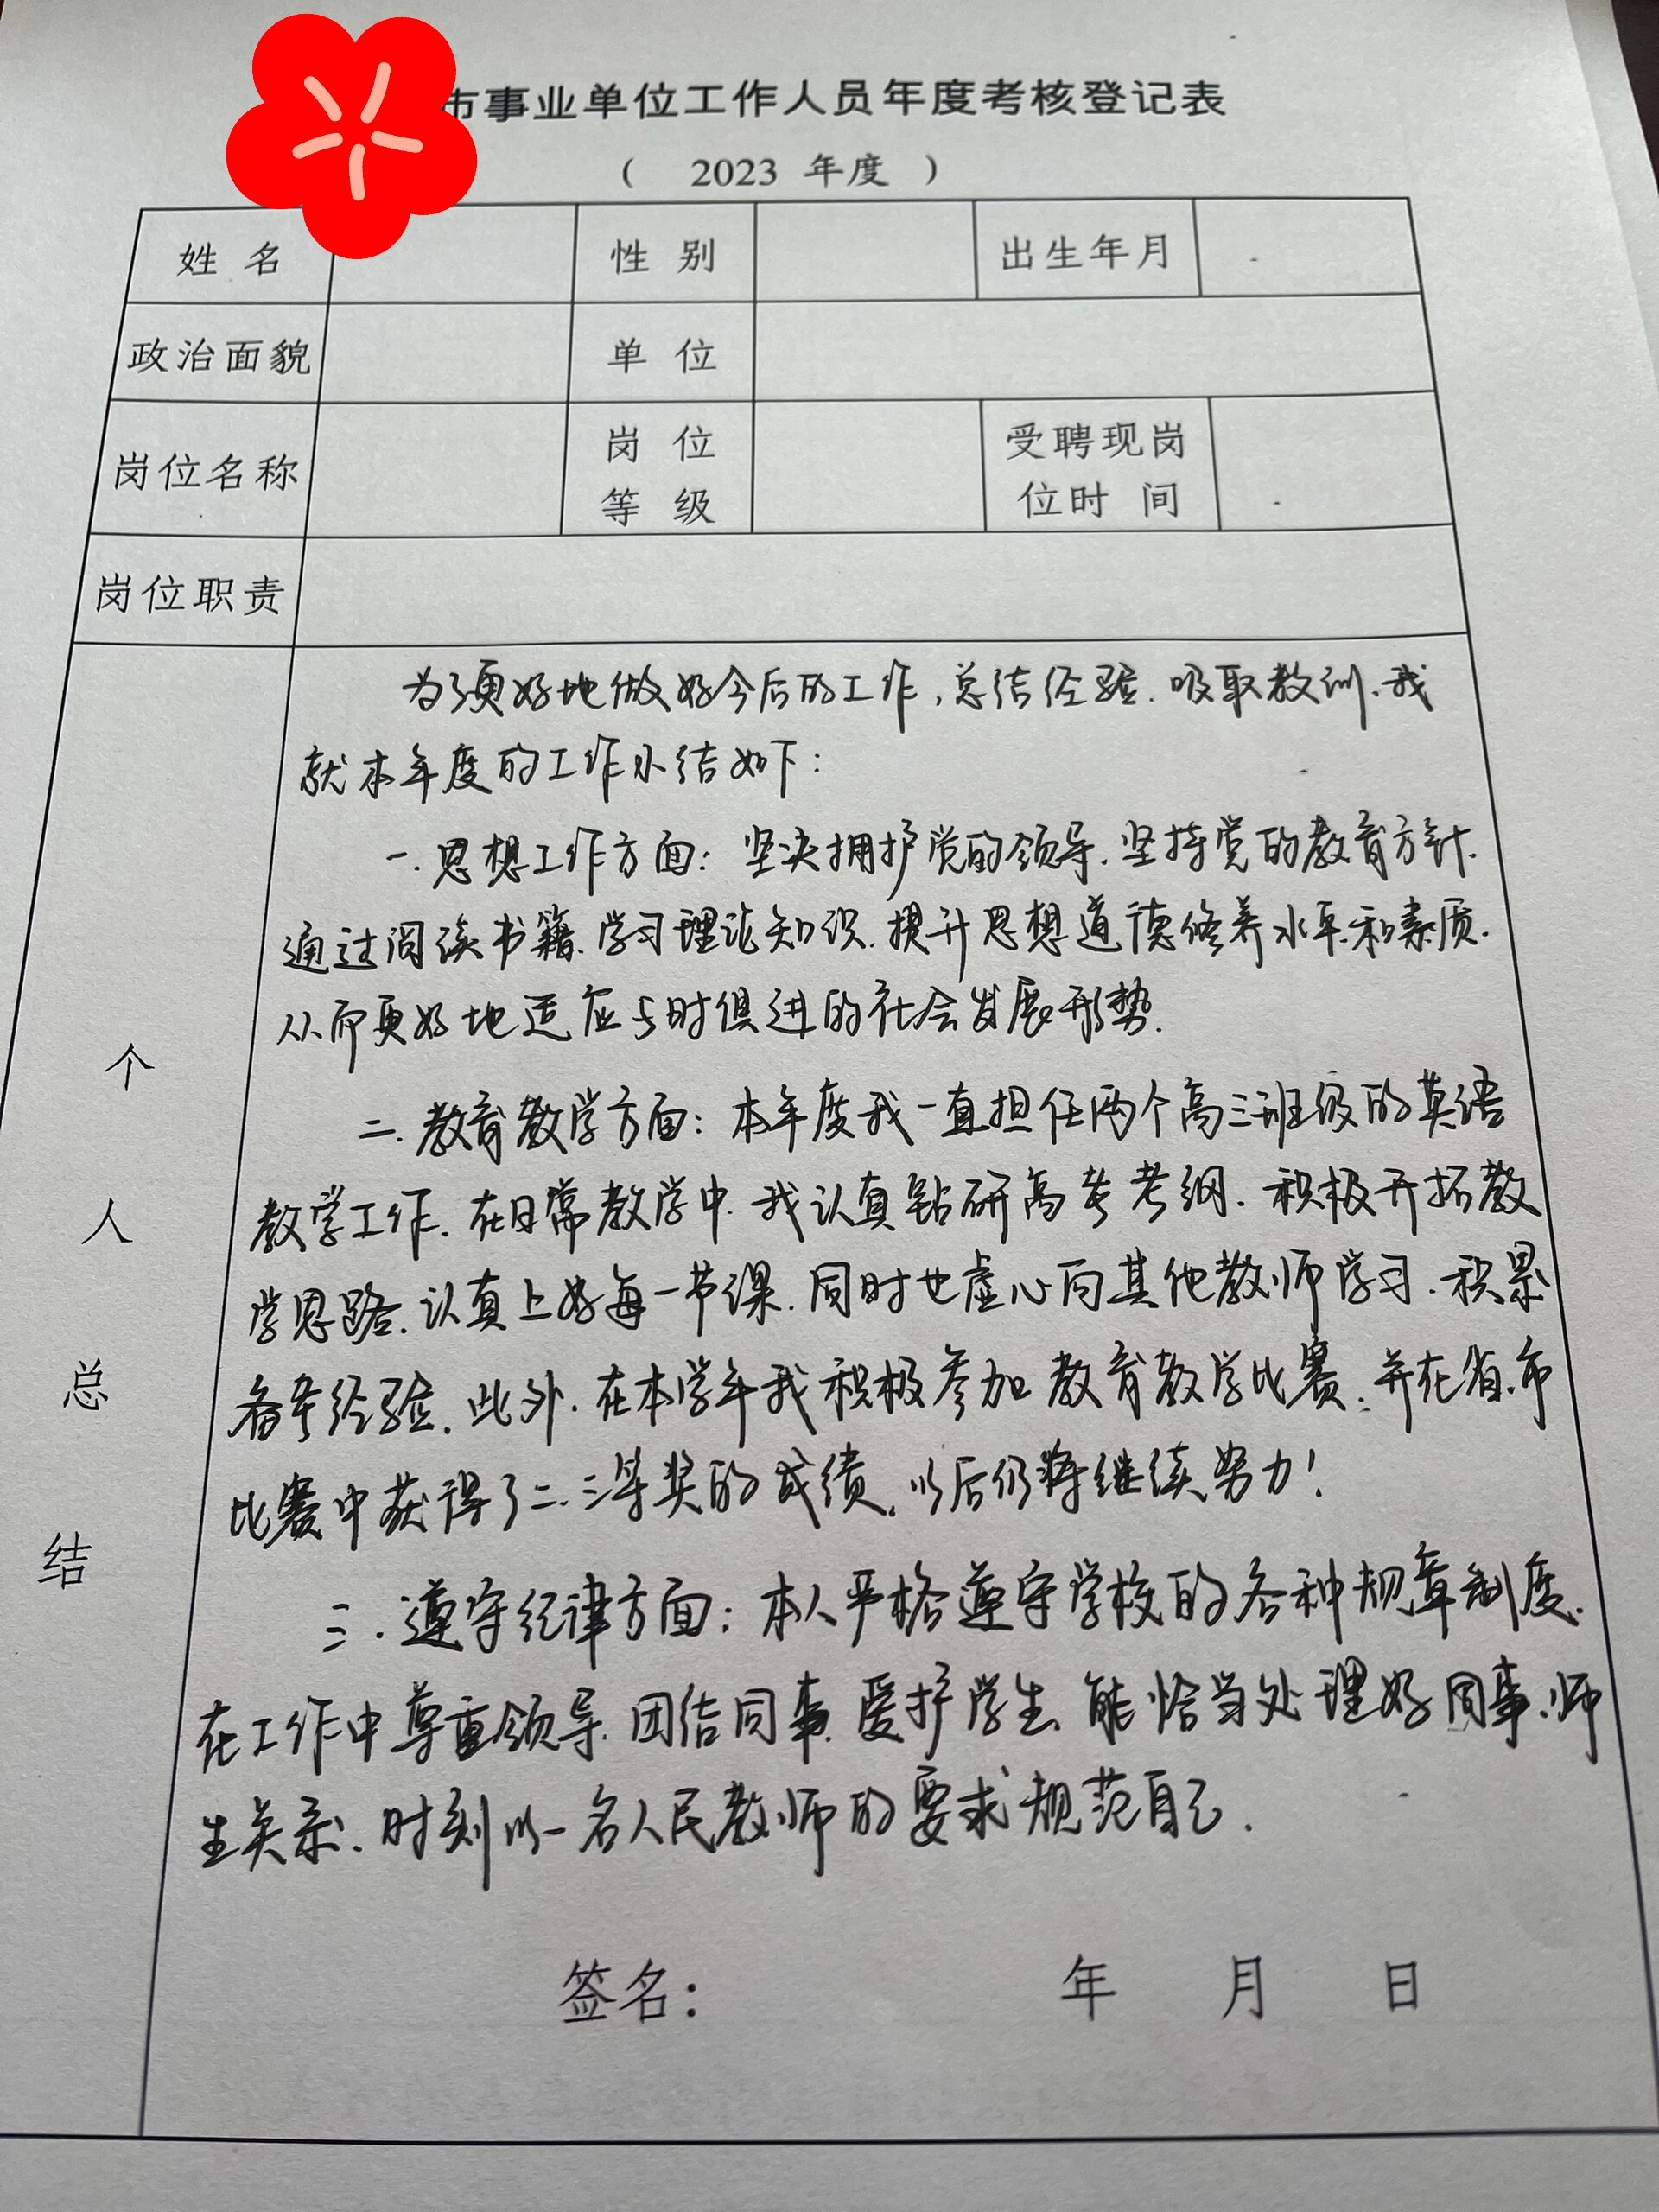 市事业单位工作人员年度考核登记表
( 2023 年度 )
姓名 性别 出生年月
政治面貌 单位
岗位名称 岗位等级 受聘现岗位时间
岗位职责
个人总结
为了更好地做好今后的工作,总结经验.吸取教训.我
就本年度的工作小结如下:
一.思想工作方面:坚决拥护党的领导.坚持党的教育方针.
通过阅读书籍.学习理论知识.提升思想道德修养水平和素质.
从而更好地适应与时俱进的社会发展形势.
二.教育教学方面:本年度我一直担任两个高三班级的英语
教学工作.在日常教学中.我认真钻研高考考纲.积极开拓教
学思路.认真上好每一节课.同时也虚心向其他教师学习.积累
备考经验.此外.在本学年我积极参加教育教学比赛.并在省.市
比赛中获得了二.三等奖的成绩.以后仍将继续努力!
三.遵守纪律方面:本人严格遵守学校的各种规章制度.
在工作中尊重领导.团结同事.爱护学生.能恰当处理好同事.师
生关系.时刻以一名人民教师的要求规范自己.
签名: 年 月 日